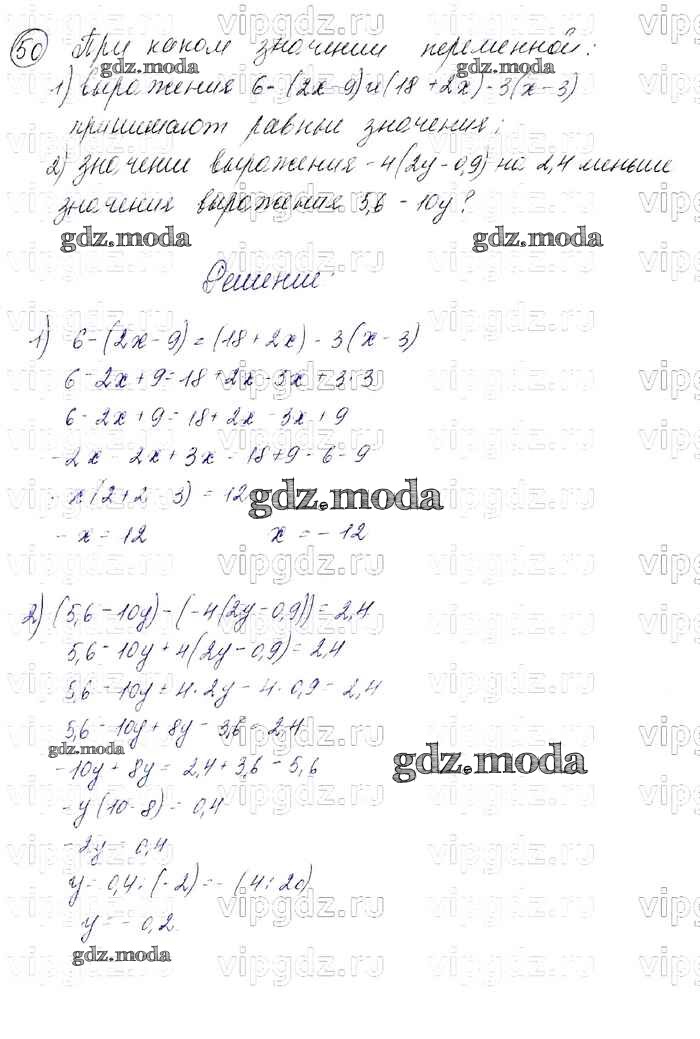 50 При каком значении переменной:
gdz.moda
1) выражения 6-(2x-9) и (18+2x)-3(x-3)
принимают равные значения;
2) значение выражения -4(2y-0,9) на 2,4 меньше
значения выражения 5,6-10y?
gdz.moda
Решение:
1) 6-(2x-9)=(18+2x)-3(x-3)
6-2x+9=18+2x-3x+3·3
6-2x+9=18+2x-3x+9
-2x-2x+3x=18+9-6-9
-x(2+2-3)=12
gdz.moda
-x=12 x=-12
2) (5,6-10y)-(-4(2y-0,9))=2,4
5,6-10y+4(2y-0,9)=2,4
5,6-10y+4·2y-4·0,9=2,4
5,6-10y+8y-3,6=2,4
gdz.moda
-10y+8y=2,4+3,6-5,6
gdz.moda
-y(10-8)=0,4
-2y=0,4
y=0,4:(-2)=-(4:20)
y=-0,2
gdz.moda
vipgdz.ru